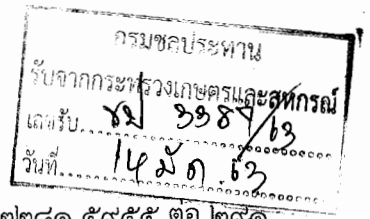 กรมชลประทาน
รับจากกระทรวงเกษตรและสหกรณ์
เลขรับ ชป 3387/63
วันที่ 14 มีค 63
๕๙๕๕ ต่อ ๒๙๑